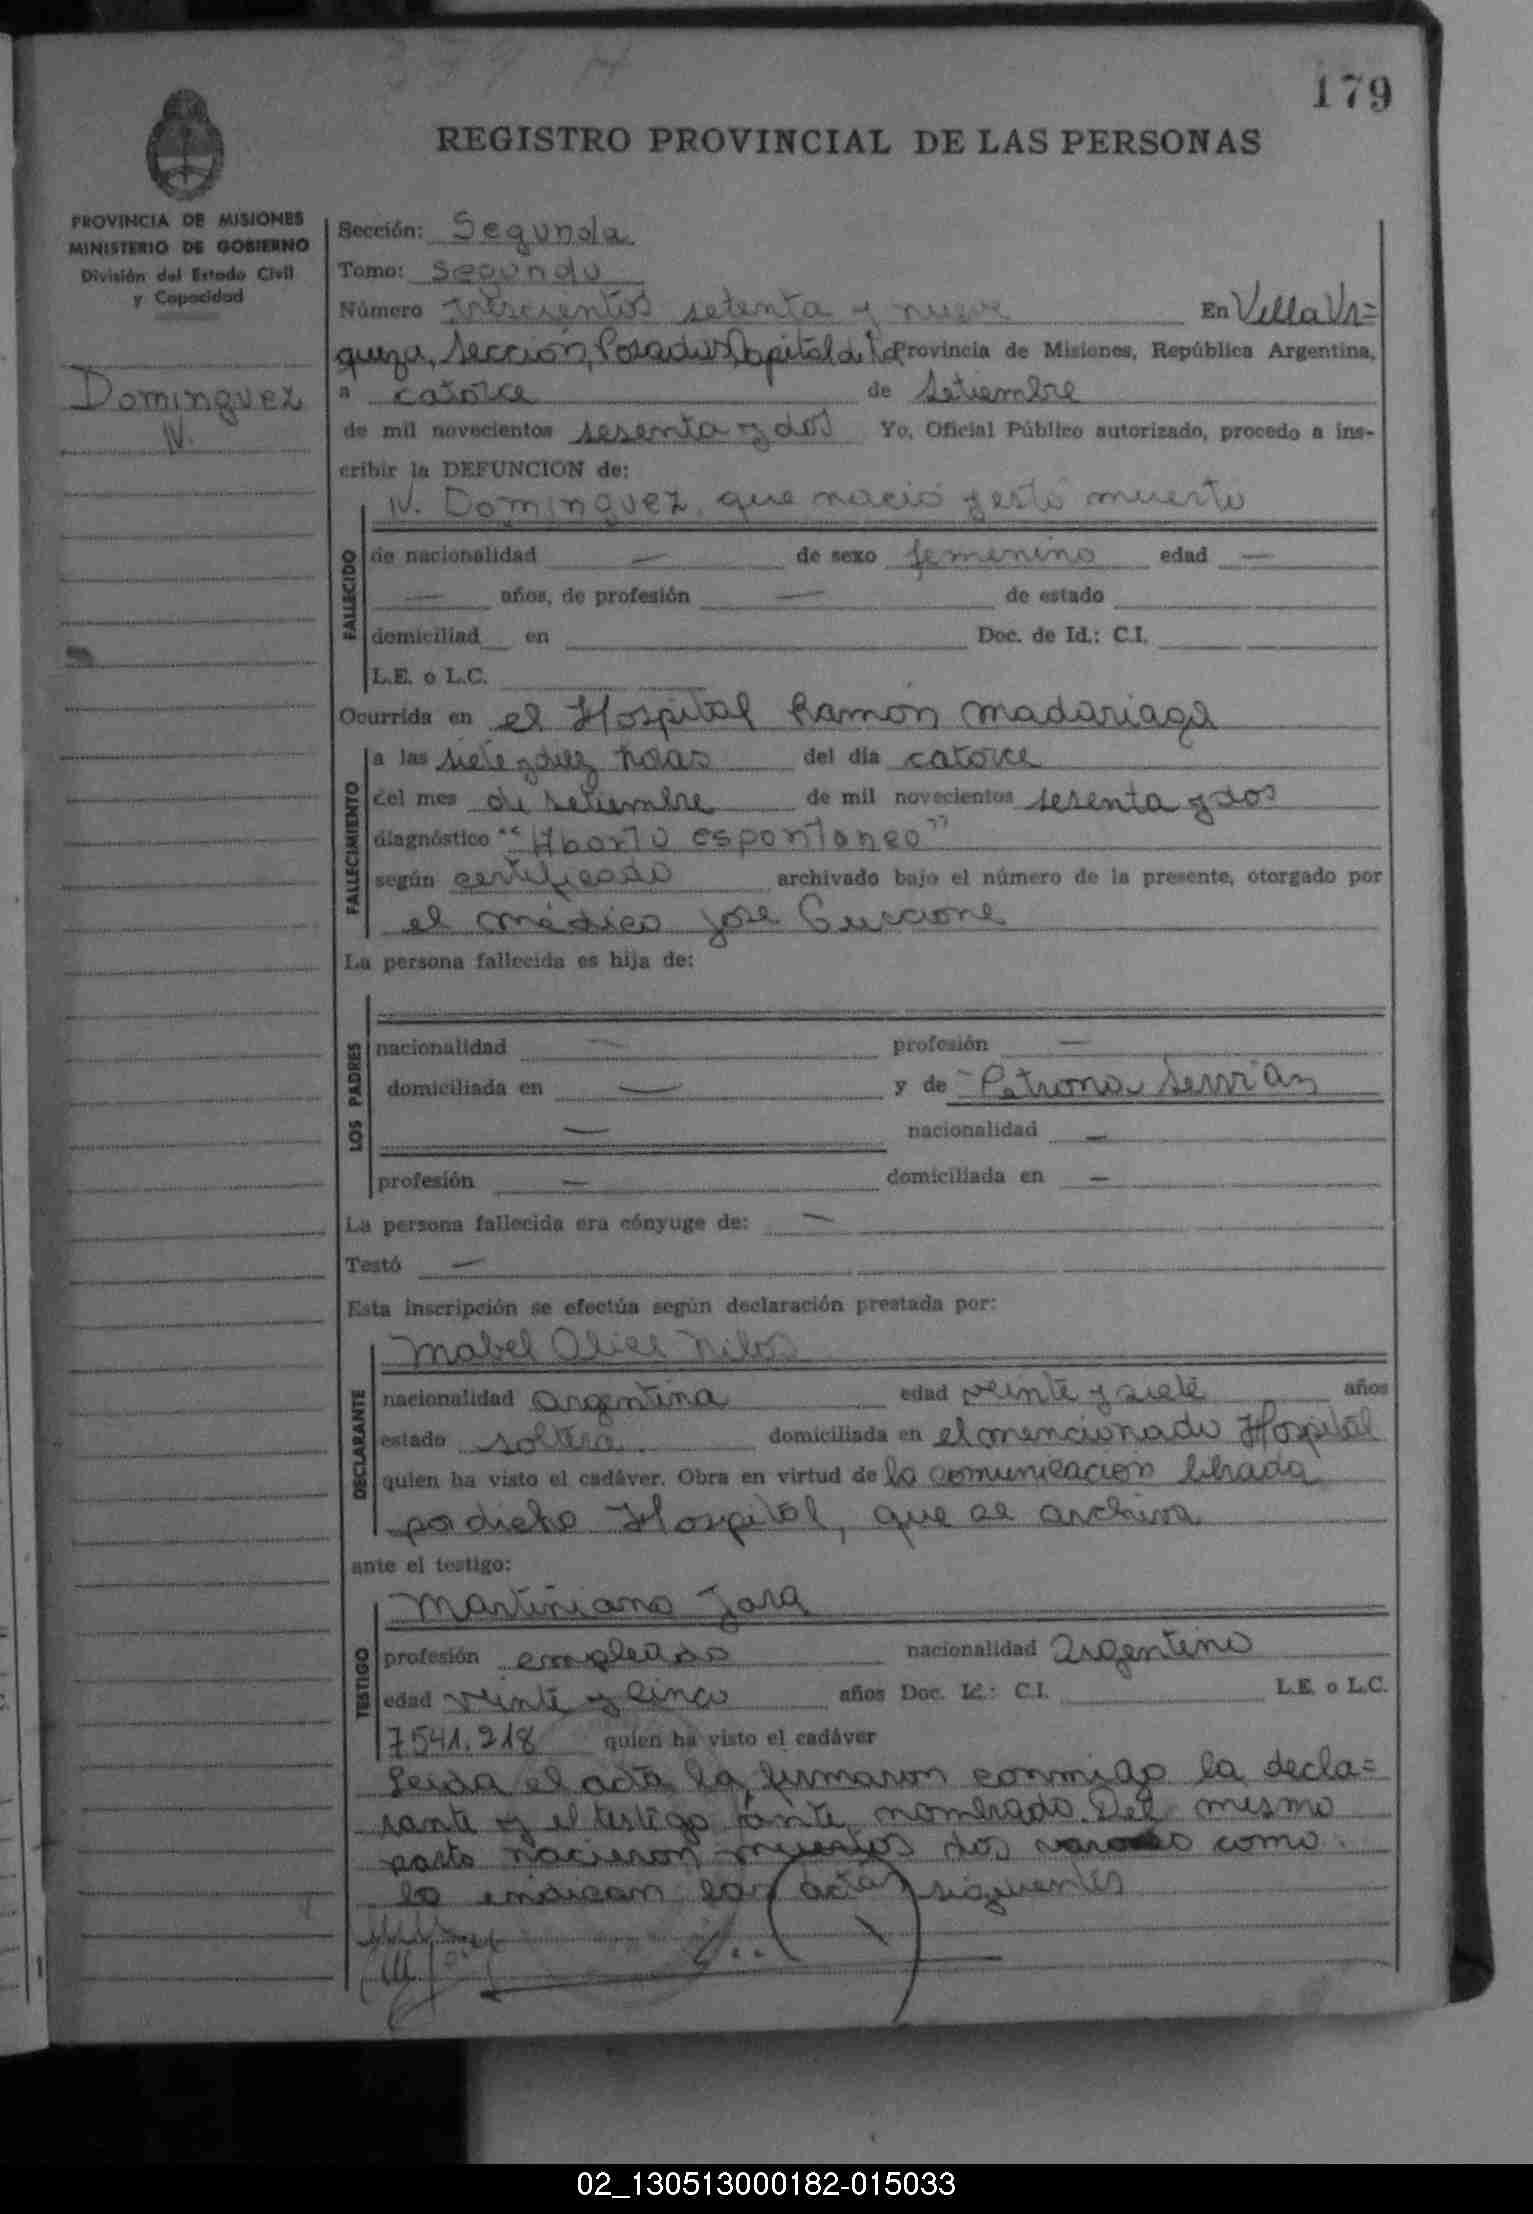 379
179
REGISTRO PROVINCIAL DE LAS PERSONAS
PROVINCIA DE MISIONES
MINISTERIO DE GOBIERNO
División del Estado Civil
y Capacidad
Dominguez
N.
Sección: Segunda
Tomo: Segundo
Número trescientos setenta y nueve En Villa Ur=
quiza, Sección, Posadas Capital de la Provincia de Misiones, República Argentina,
a catorce de Setiembre
de mil novecientos sesenta y dos Yo, Oficial Público autorizado, procedo a ins-
cribir la DEFUNCION de:
N. Dominguez, que nació y está muerto
FALLECIDO
de nacionalidad — de sexo femenino edad —
— años, de profesión — de estado
domiciliad en Doc. de Id.: C.I.
L.E. o L.C.
Ocurrida en el Hospital Ramón Madariaga
FALLECIMIENTO
a las siete y diez horas del día catorce
del mes de Setiembre de mil novecientos sesenta y dos
diagnóstico "Aborto espontaneo"
según certificado archivado bajo el número de la presente, otorgado por
el médico José Guccione
La persona fallecida es hija de:
LOS PADRES
nacionalidad — profesión —
domiciliada en — y de Petrona Servian
— nacionalidad —
profesión — domiciliada en —
La persona fallecida era cónyuge de: —
Testó —
Esta inscripción se efectúa según declaración prestada por:
Mabel
DECLARANTE
nacionalidad argentina edad veinte y siete años
estado soltera domiciliada en el mencionado Hospital
quien ha visto el cadáver. Obra en virtud de la comunicación librada
por dicho Hospital, que se archiva
ante el testigo:
Martiniano Jara
TESTIGO
profesión empleado nacionalidad argentino
edad veinte y cinco años Doc. Id.: C.I. L.E. o L.C.
7.541.218 quien ha visto el cadáver
Leida el acta la firmaron conmigo la decla=
rante y el testigo ante nombrado. Del mismo
parto nacieron muertos dos como
lo indican las actas siguientes
02_130513000182-015033